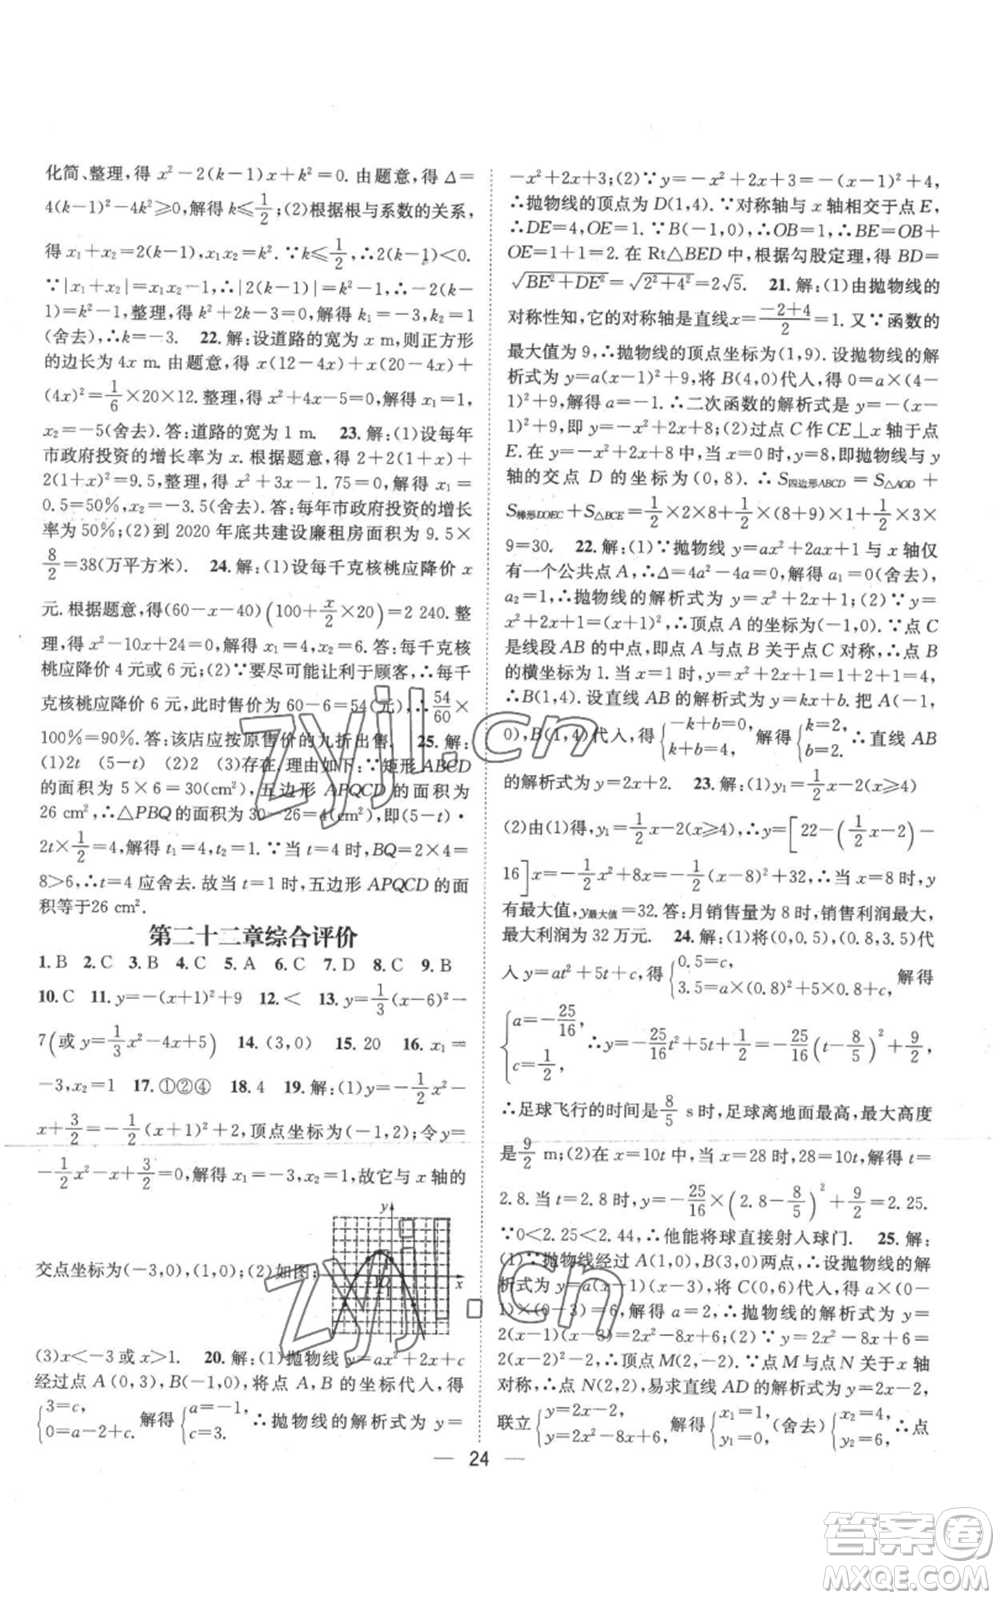 化简、整理,得 x²-2(k-1)x+k²=0. 由题意,得 Δ=
4(k-1)²-4k²≥0,解得 k≤1/2;(2)根据根与系数的关系,
得 x₁+x₂=2(k-1),x₁x₂=k². ∵k≤1/2,∴2(k-1)<0.
∵|x₁+x₂|=x₁x₂-1,∴|2(k-1)|=k²-1,∴-2(k-
1)=k²-1,整理,得 k²+2k-3=0,解得 k₁=-3,k₂=1
(舍去),∴k=-3. 22. 解:设道路的宽为 x m,则正方形
的边长为 4x m. 由题意,得 x(12-4x)+x(20-4x)+
(4x)²=1/6×20×12. 整理,得 x²+4x-5=0,解得 x₁=1,
x₂=-5(舍去). 答:道路的宽为 1 m. 23. 解:(1)设每年
市政府投资的增长率为 x. 根据题意,得 2+2(1+x)+
2(1+x)²=9.5,整理,得 x²+3x-1.75=0,解得 x₁=
0.5=50%,x₂=-3.5(舍去). 答:每年市政府投资的增长
率为 50%;(2)到 2020 年底共建设廉租房面积为 9.5×
8/2=38(万平方米). 24. 解:(1)设每千克核桃应降价 x
元. 根据题意,得(60-x-40)(100+x/2×20)=2 240. 整
理,得 x²-10x+24=0,解得 x₁=4,x₂=6. 答:每千克核
桃应降价 4 元或 6 元;(2)∵要尽可能让利于顾客,∴每千
克核桃应降价 6 元,此时售价为 60-6=54(元),∴54/60×
100%=90%. 答:该店应按原售价的九折出售. 25. 解:
(1)2t (5-t) (2)存在. 理由如下:∵矩形 ABCD
的面积为 5×6=30(cm²),五边形 APQCD 的面积为
26 cm²,∴△PBQ 的面积为 30-26=4(cm²),即(5-t)·
2t×1/2=4,解得 t₁=4,t₂=1. ∵当 t=4 时,BQ=2×4=
8>6,∴t=4 应舍去. 故当 t=1 时,五边形 APQCD 的面
积等于26 cm².
第二十二章综合评价
1. B 2. C 3. B 4. C 5. A 6. C 7. D 8. C 9. B
10. C 11. y=-(x+1)²+9 12. < 13. y=1/3(x-6)²-
7(或 y=1/3x²-4x+5) 14. (3,0) 15. 20 16. x₁=
-3,x₂=1 17. ①②④ 18. 4 19. 解:(1)y=-1/2x²-
x+3/2=-1/2(x+1)²+2,顶点坐标为(-1,2);令 y=
-1/2x²-x+3/2=0,解得 x₁=-3,x₂=1,故它与 x 轴的
交点坐标为(-3,0),(1,0);(2)如图:
y
x
(3)x<-3 或 x>1. 20. 解:(1)抛物线 y=ax²+2x+c
经过点 A(0,3),B(-1,0),将点 A,B 的坐标代入,得
{3=c, 0=a-2+c, 解得{a=-1, c=3. ∴抛物线的解析式为 y=
-x²+2x+3;(2)∵y=-x²+2x+3=-(x-1)²+4,
∴抛物线的顶点为 D(1,4). ∵对称轴与 x 轴相交于点 E,
∴DE=4,OE=1. ∵B(-1,0),∴OB=1,∴BE=OB+
OE=1+1=2. 在 Rt△BED 中,根据勾股定理,得 BD=
√(BE²+DE²)=√(2²+4²)=2√5. 21. 解:(1)由抛物线的
对称性知,它的对称轴是直线x=(-2+4)/2=1. 又∵函数的
最大值为 9,∴抛物线的顶点坐标为(1,9). 设抛物线的解
析式为 y=a(x-1)²+9,将 B(4,0)代入,得 0=a×(4-
1)²+9,解得 a=-1. ∴二次函数的解析式是 y=-(x-
1)²+9,即 y=-x²+2x+8;(2)过点 C 作CE⊥x 轴于点
E. ∵y=-x²+2x+8,∴当 x=0 时,y=8,即抛物线与 y
轴的交点 D 的坐标为(0,8). ∴S四边形ABCD=S△AOD+
S梯形DOEC+S△BCE=1/2×2×8+1/2×(8+9)×1+1/2×3×
9=30. 22. 解:(1)∵抛物线 y=ax²+2ax+1 与 x 轴仅
有一个公共点 A,∴Δ=4a²-4a=0,解得 a₁=0(舍去),
a₂=1,∴抛物线的解析式为 y=x²+2x+1;(2)∵y=
x²+2x+1=(x+1)²,∴顶点 A 的坐标为(-1,0). ∵点 C
是线段 AB 的中点,即点 A 与点 B 关于点 C 对称,∴点 B
的横坐标为 1. 当 x=1 时,y=x²+2x+1=1+2+1=4,
∴B(1,4). 设直线 AB 的解析式为 y=kx+b. 把 A(-1,
0),B(1,4)代入,得{-k+b=0, k+b=4, 解得{k=2, b=2. ∴直线 AB
的解析式为 y=2x+2. 23. 解:(1)y₁=1/2x-2(x≥4)
(2)由(1)得,y₁=1/2x-2(x≥4),∴y=[22-(1/2x-2)-
16]x=-1/2x²+8x=-1/2(x-8)²+32,当 x=8 时,y
有最大值,y最大值=32. 答:月销售量为 8 时,销售利润最大,
最大利润为 32 万元. 24. 解:(1)将(0,0.5),(0.8,3.5)代
入 y=at²+5t+c,得{0.5=c, 3.5=a×(0.8)²+5×0.8+c, 解得
{a=-25/16, c=1/2, ∴y=-25/16t²+5t+1/2=-25/16(t-8/5)²+9/2,
∴足球飞行的时间是8/5 s时,足球离地面最高,最大高度
是9/2 m;(2)在 x=10t 中,当 x=28 时,28=10t,解得 t=
2.8. 当 t=2.8 时,y=-25/16×(2.8-8/5)²+9/2=2.25.
∵0<2.25<2.44,∴他能将球直接射入球门. 25. 解:
(1)∵抛物线经过 A(1,0),B(3,0)两点,∴设抛物线的
解析式为 y=a(x-1)(x-3),将 C(0,6)代入,得 a×(0-
1)×(0-3)=6,解得 a=2,∴抛物线的解析式为 y=
2(x-1)(x-3)=2x²-8x+6;(2)∵y=2x²-8x+6=
2(x-2)²-2,∴顶点 M(2,-2). ∵点 M 与点 N 关于 x轴
对称,∴点 N(2,2),易求直线 AD 的解析式为 y=2x-2,
联立{y=2x-2, y=2x²-8x+6, 解得{x₁=1, y₁=0, (舍去){x₂=4, y₂=6, ∴点
24
zyjl.cn
答案圈
MXQE.COM